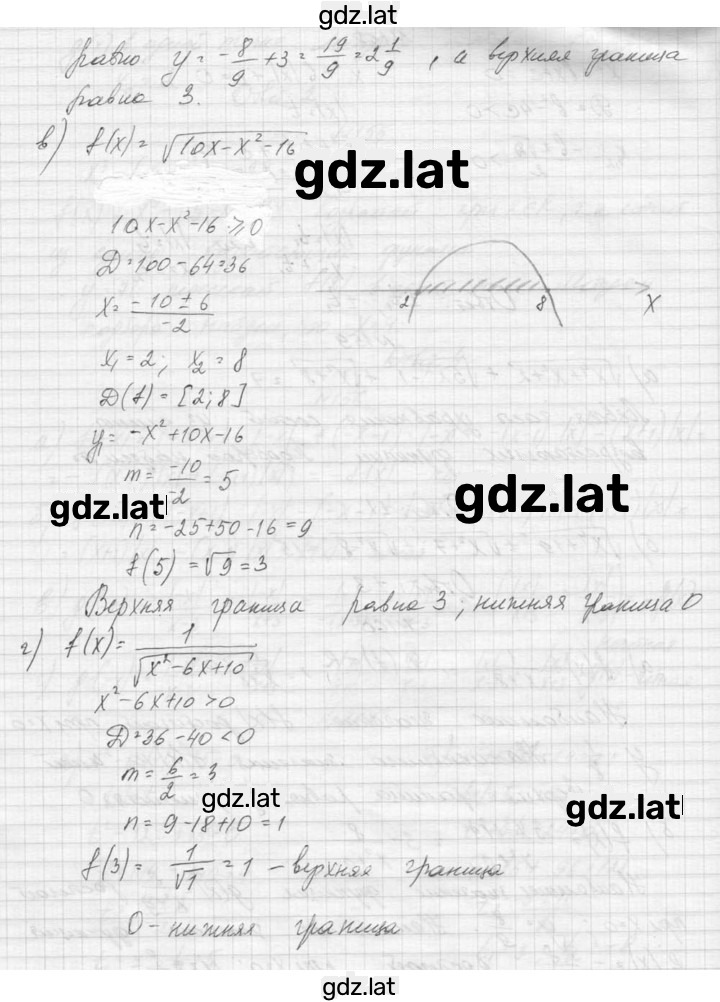 gdz.lat
равно y = -8/9 + 3 = 19/9 = 2 1/9, а верхняя граница
равна 3.
в) f(x) = √(10x-x²-16)
gdz.lat
10x-x²-16 ≥ 0
D = 100-64 = 36
x = (-10 ± 6)/(-2)
2 8 x
x₁ = 2; x₂ = 8
D(f) = [2; 8]
y = -x²+10x-16
m = -10/-2 = 5
gdz.lat
gdz.lat
n = -25+50-16 = 9
f(5) = √9 = 3
Верхняя граница равна 3, нижняя граница 0
г) f(x) = 1/√(x²-6x+10)
x²-6x+10 > 0
D = 36-40 < 0
m = 6/2 = 3
gdz.lat
gdz.lat
n = 9-18+10 = 1
f(3) = 1/√1 = 1 – верхняя граница
0 – нижняя граница
gdz.lat